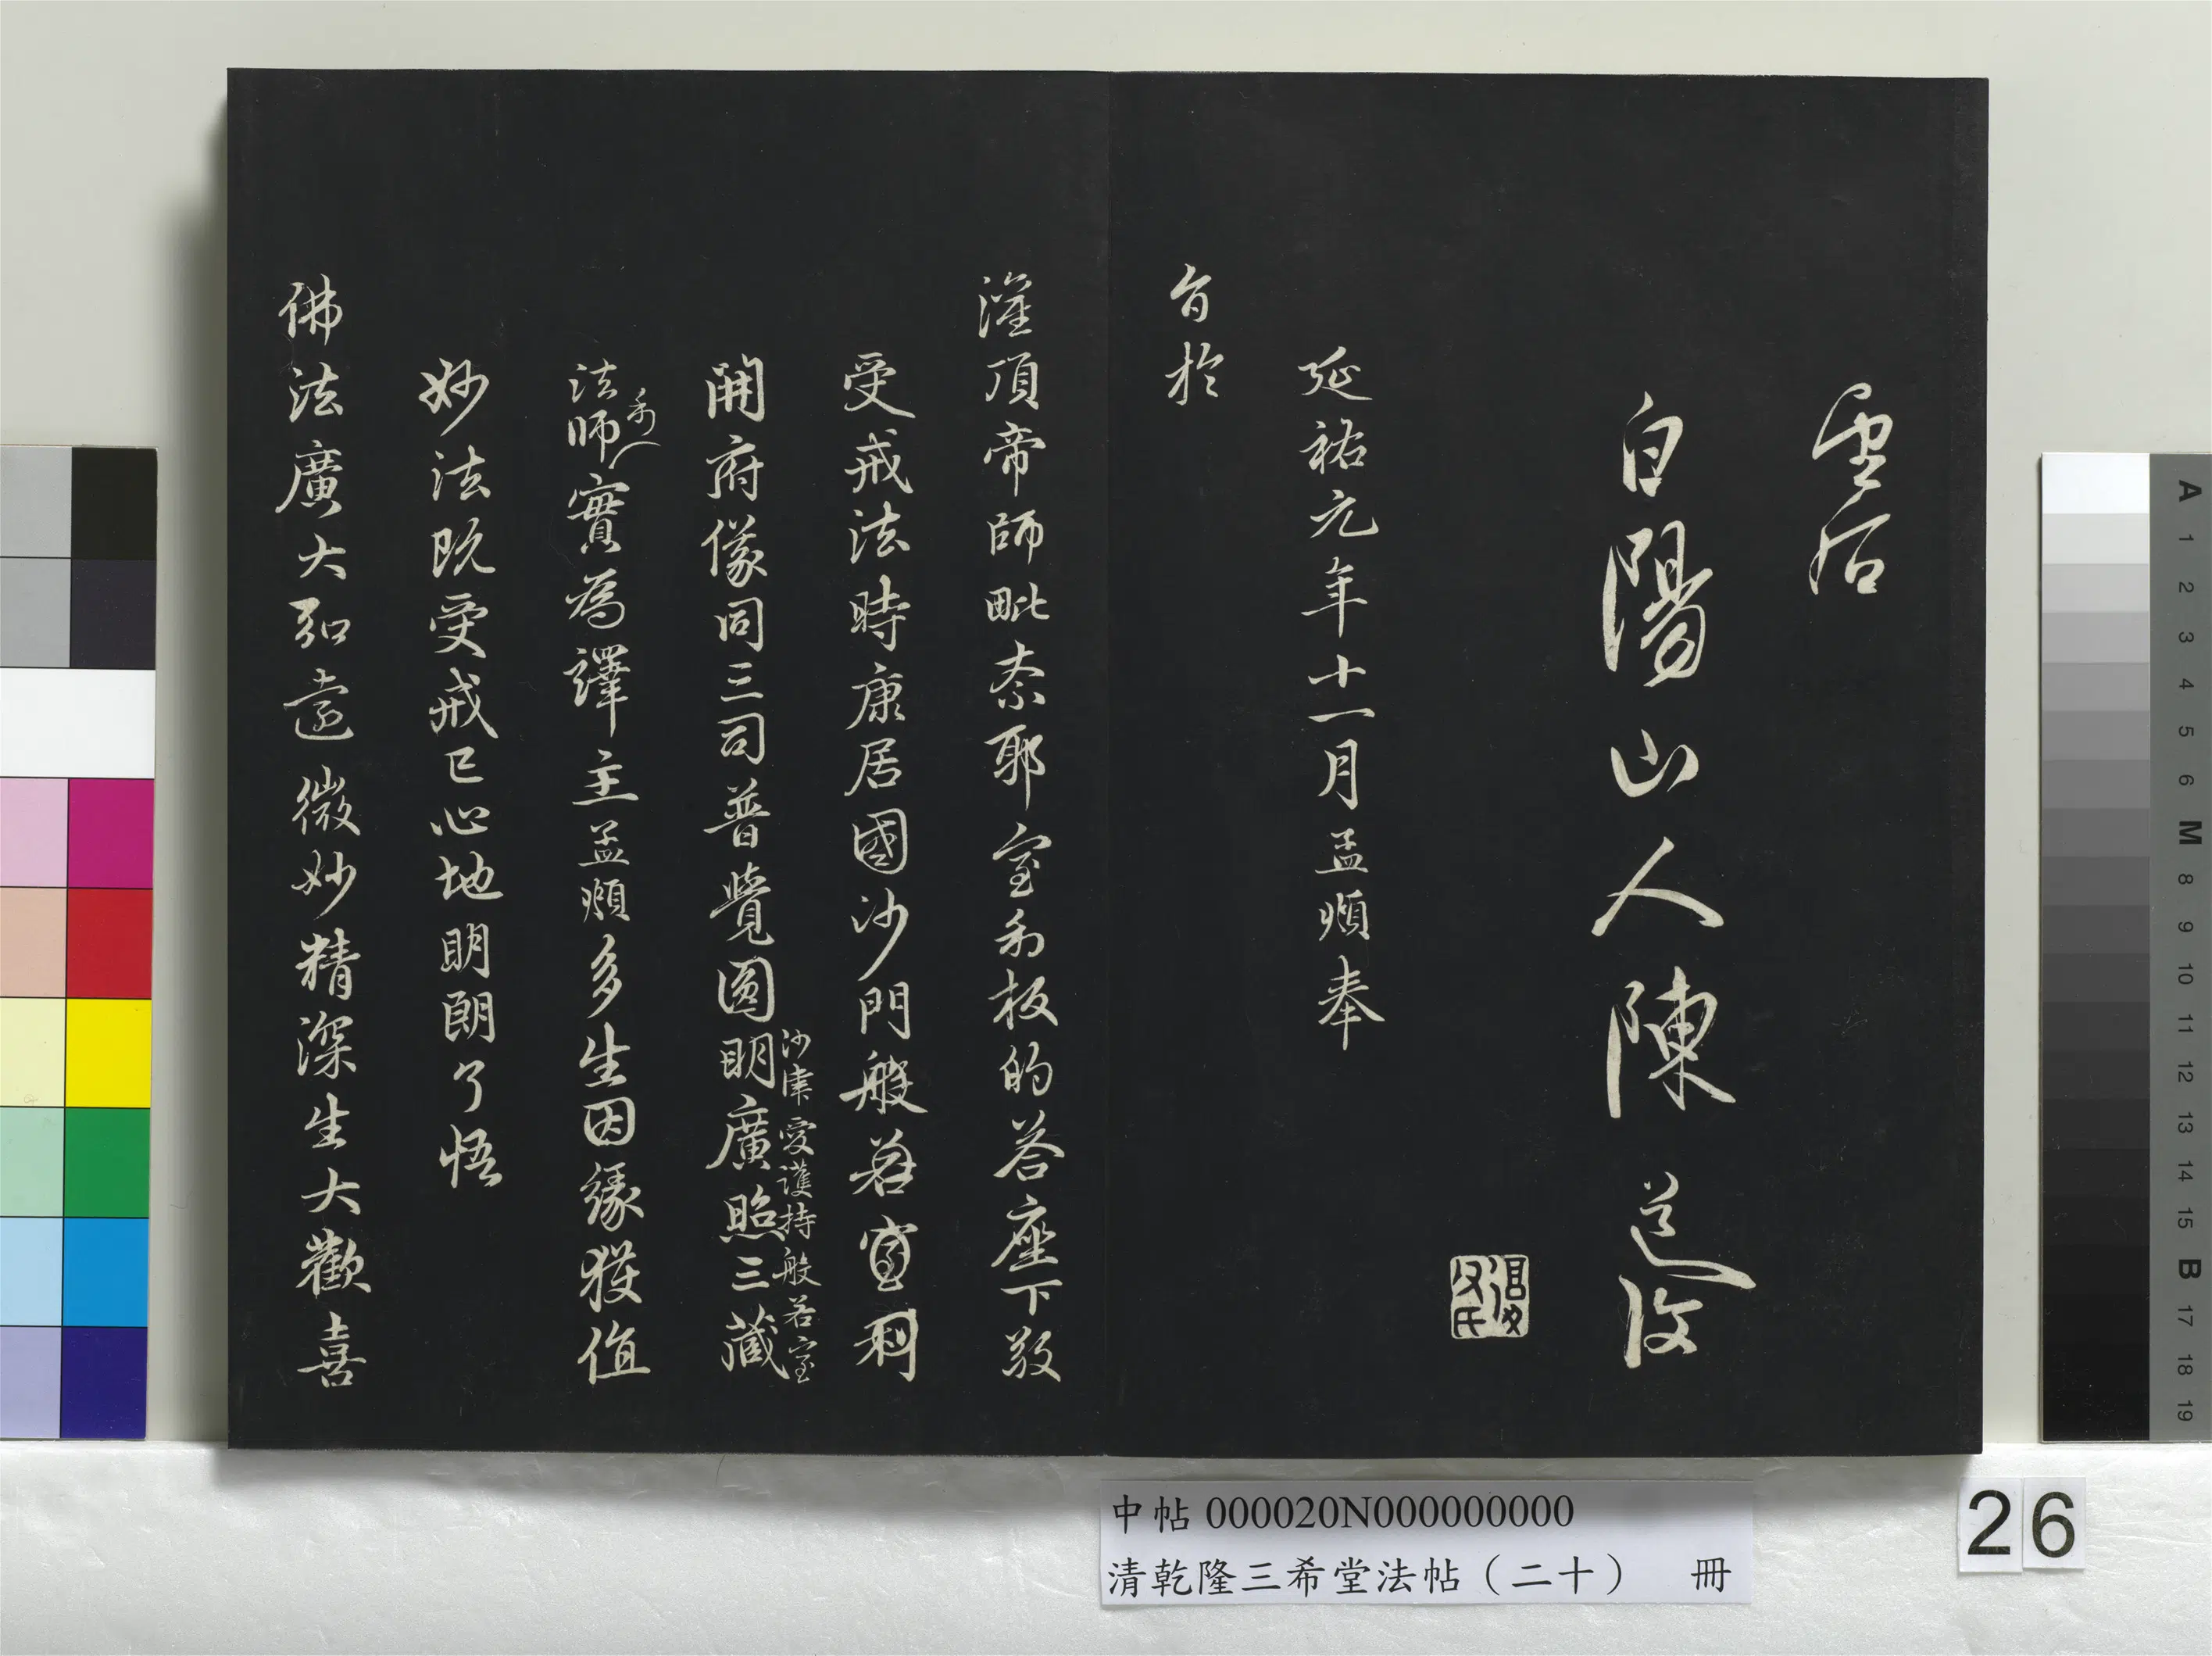 白陽山人陳道復
延祐元年十一月孟頫奉
旨於
灌頂帝師毗奈耶室利板的答座下敬
受戒法時康居國沙門般若室利
沙律愛護持般若室
開府儀同三司普覺圓明廣照三藏
利
法師實為譯主孟頫多生因緣獲值
妙法既受戒已心地明朗了悟
佛法廣大弘遠微妙精深生大歡喜
中帖 000020N000000000
清乾隆三希堂法帖（二十） 冊
26
A 1 2 3 4 5 6 M 8 9 10 11 12 13 14 15 B 17 18 19